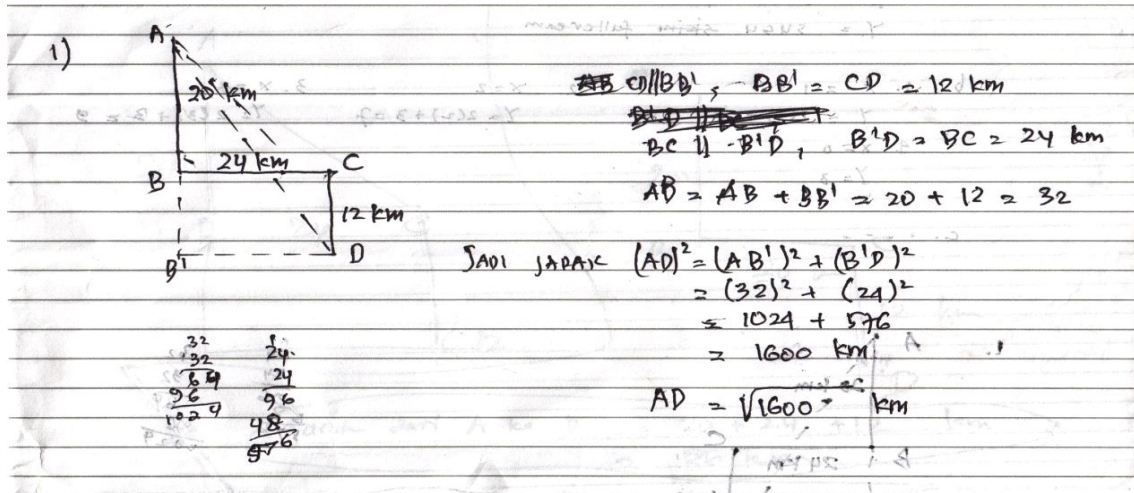 1)
A
20 km
24 km
B
C
12 km
B'
D
CD//BB' , BB' = CD = 12 km
BC // B'D , B'D = BC = 24 km
AB = AB + BB' = 20 + 12 = 32
JADI JARAK (AD)² = (AB')² + (B'D)²
= (32)² + (24)²
= 1024 + 576
= 1600 km
AD = √1600 km
32
32
64
96
1024
24
24
96
48
576